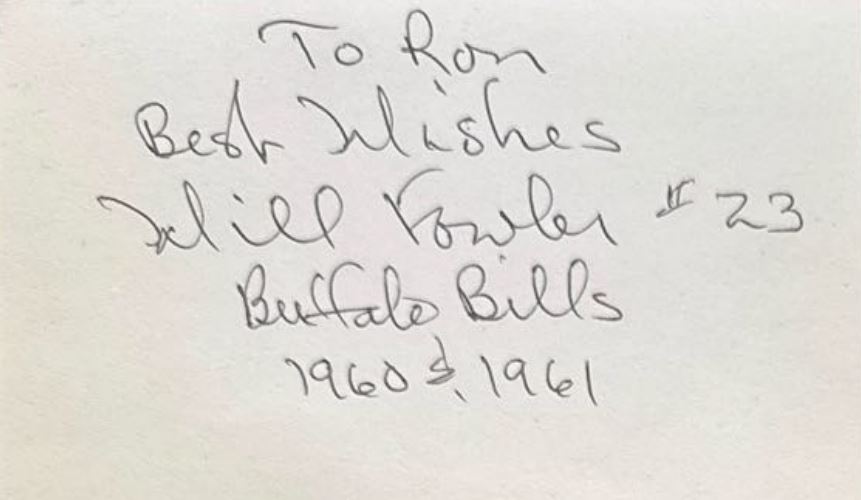 To Ron
Best Wishes
Will Fowler #23
Buffalo Bills
1960 & 1961